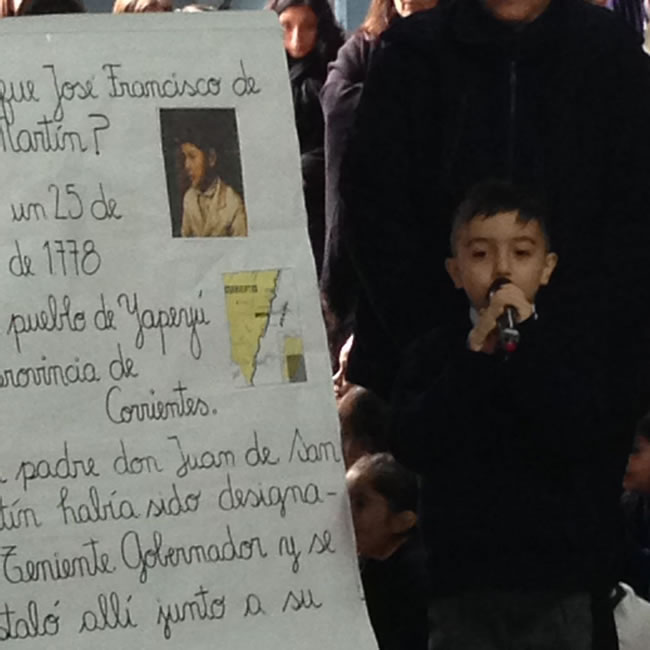 que José Francisco de
Martín?
un 25 de
de 1778
pueblo de Yapeyú
provincia de
Corrientes.
padre don Juan de San
tín había sido designa-
Teniente Gobernador y se
taló allí junto a su